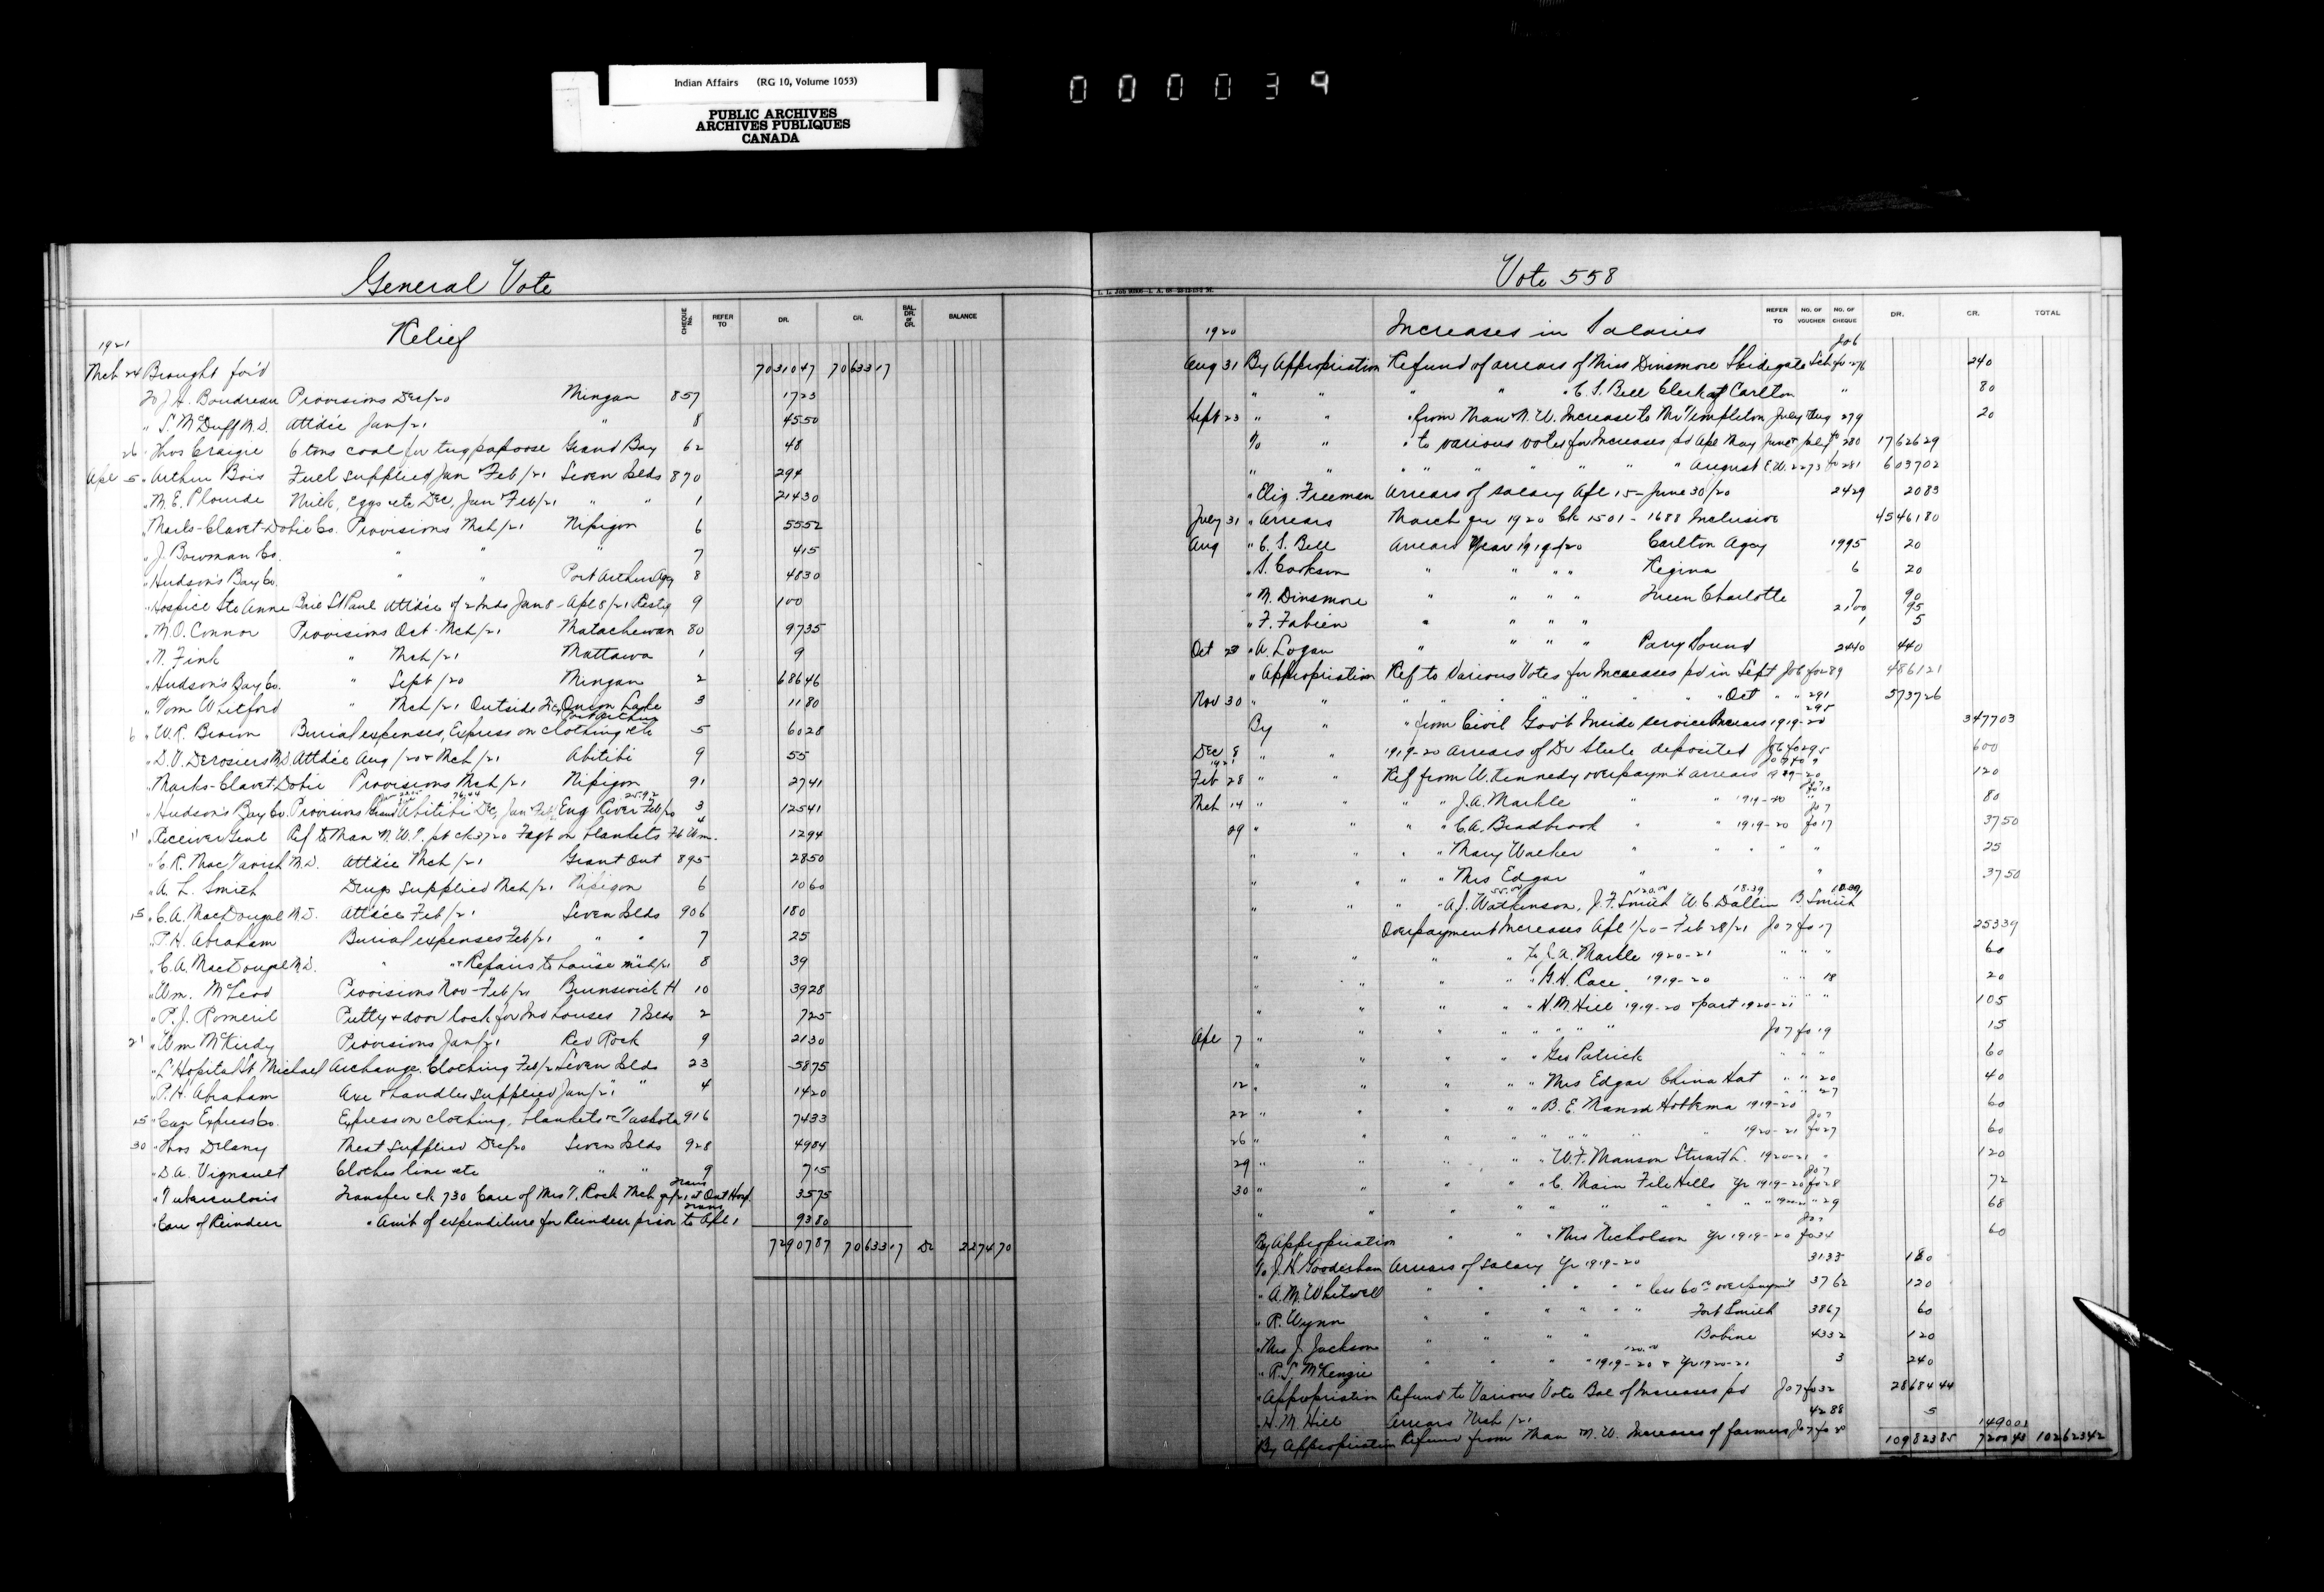 Indian Affairs (RG 10, Volume 1053)
PUBLIC ARCHIVES
ARCHIVES PUBLIQUES
CANADA
000039
General Vote
Relief
CHEQUE No. REFER TO DR. CR. BAL. DR. or CR. BALANCE
1921
Mch 24 Brought for'd 7031047 7063317
To J.A. Boudreau Provisions Dec/20 Mingan 857 1723
" S. McDuff M.D. Attd'ce Jan/21 " 8 4550
26 " Thos Craigie 6 tons coal for tug papoose Grand Bay 62 48
Apl 5 " Arthur Bois Fuel supplied Jan Feb/21 Seven Islds 870 294
" M.E. Plourde Milk, Eggs etc Dec, Jan Feb/21 " " 1 21430
" Marks-Clavet-Dobie Co. Provisions Mch/21 Nipigon 6 5552
" J. Bowman Co. " " " 7 415
" Hudson's Bay Co. " " Port Arthur Agcy 8 4830
" Hospice Ste Anne Baie St Paul Attd'ce of 2 Inds Jan 8 - Apl 8/21 Restig 9 100
" M.O. Connor Provisions Oct-Mch/21 Matachewan 80 9735
" N. Fink " Mch/21 Mattawa 1 9
" Hudson's Bay Co. " Sept/20 Mingan 2 68646
" Tom Whitford " Mch/21 Outside Onion Lake 3 1180
Port Arthur
6 " W.R. Brown Burial expenses, Express on clothing etc 5 6028
" D.V. Derosiers M.D. Attd'ce Aug/20 & Mch/21 Abitibi 9 55
" Marks-Clavet-Dobie Provisions Mch/21 Nipigon 91 2741
76.44 25.92
" Hudson's Bay Co. Provisions Abitibi Dec, Jan Feb Eng River Feb/20 3 12541
11 " Receiver Genl Ref to Man N.W.T. pt ck 3720 Fagt on blankets Ft Wm. 4 1294
" C.R. MacTavish M.D. Attd'ce Mch/21 Grant Ont 895 2850
" A.L. Smith Drugs supplied Mch/21 Nipigon 6 1060
15 " C.A. MacDougal M.D. Attd'ce Feb/21 Seven Islds 906 180
" P.H. Abraham Burial expenses Feb/21 " " 7 25
" C.A. MacDougal M.D. " " & Repairs to house Mch/21 8 39
" Wm. McLeod Provisions Nov-Feb/21 Brunswick H 10 3928
" P.J. Romeril Putty & door lock for Ind houses 7 Islds 2 725
21 " Wm McKirdy Provisions Jan/21 Red Rock 9 2130
" L'Hopital St Michael Archange. Clothing Feb/21 Seven Islds 23 5875
" P.H. Abraham Axe & handles supplied Jan/21 " 4 1420
25 " Can Express Co. Express on clothing, blankets &c Tashota 916 7433
30 " Thos Delany Meat supplied Dec/20 Seven Islds 928 4984
" D.A. Vignault Clothes line etc " " 9 715
Trans
" Tuberculosis Transfer ck 730 Care of Mrs T. Rock Mch qr/21 at Ont Hosp. 3575
Trans
" Care of Reindeer " Am't of expenditure for Reindeer prior to Apl 1 9380
7290787 7063317 Dr 227470
Vote 558
REFER TO NO. OF VOUCHER NO. OF CHEQUE DR. CR. TOTAL
1920 Increases in Salaries
Jo 6
Aug 31 By Appropriation Refund of arrears of Miss Dinsmore Skidegate Sch fo 276 240
" " " C.S. Bell Clerk of Carlton " 80
Sept 23 " " " from Man N.W. Increase to Mr Templeton July & Aug 279 20
To " " to various votes for Increases pd Apl May June & July fo 280 1762629
" " " " " " " " August E.W. 2273 fo 281 603702
" Eliz. Freeman Arrears of salary Apl 15 - June 30/20 2429 2083
July 31 " Arrears March qr 1920 Ck 1501 - 1688 Inclusive 4546180
Aug " C.S. Bell Arrears Year 1919/20 Carlton Agcy 1995 20
" S. Cookson " " " " Regina 6 20
" M. Dinsmore " " " " Queen Charlotte 7 90
2100 95
" F. Fabien " " " " 1 5
Oct 23 " A. Logan " " " " Parry Sound 2440 440
" Appropriation Ref to Various Votes for Increases pd in Sept Jo 6 fo 289 486121
Nov 30 " " " " " " " " Oct " " 291 573726
295
By " " from Civil Gov't Inside service Increases 1919-20 347703
Dec 8 " " 1919-20 arrears of Dr Steele deposited Jo 6 fo 295 600
1921
Feb 28 " " Ref from W. Kennedy overpaym't arrears 1919-20 120
Mch 14 " " " " J.A. Markle " " 1919-20 80
29 " " " C.A. Bradbrook " " 1919-20 fo 17 3750
" " " " Mary Walker " " " " " 25
" " " " Mrs Edgar " " 3750
55.00 120.00 18.39
" " " " A.J. Watkinson, J.F. Smith W.C. Dallin B. Smith
Overpayment Increases Apl 1/20 - Feb 28/21 Jo 7 fo 17 25339
" " " " to J.A. Markle 1920-21 " " " 60
" " " " " G.H. Race 1919-20 " " 18 20
" " " " " H.M. Hill 1919-20 & part 1920-21 " " 105
Apl 7 " " " " " " " Jo 7 fo 19 15
" " " " " Geo Patrick " " " 60
12 " " " " Mrs Edgar China Hat " " 20 40
22 " " " " B.E. Manson Hobbema 1919-20 " " 27 60
26 " " " " " " 1920-21 fo 27 60
29 " " " " W.F. Manson Stuart L. 1920-21 " 120
30 " " " " C. Main File Hills Yr 1919-20 fo 28 72
" " " " " " " " " " 29 68
By Appropriation " " " Mrs Nicholson Yr 1919-20 fo 34 60
To J.H. Gooderham Arrears of salary Yr 1919-20 3135 180
" A.M. Whitwell " " " " less 60.00 overpaym't 3762 120
" R. Wynn " " " " Fort Smith 3867 60
" Mrs J. Jackson " " " " Babine 4332 120
120.00
" R.S. McKenzie " " " " 1919-20 & Yr 1920-21 3 240
" Appropriation Refund to Various Vote Bal of Increases pd Jo 7 fo 32 2868444
" H.M. Hill Arrears Mch/21 4288 5
By Appropriation Refund from Man N.W. Increases of farmers Jo 7 fo 28 149001
10982385 720043 10262342